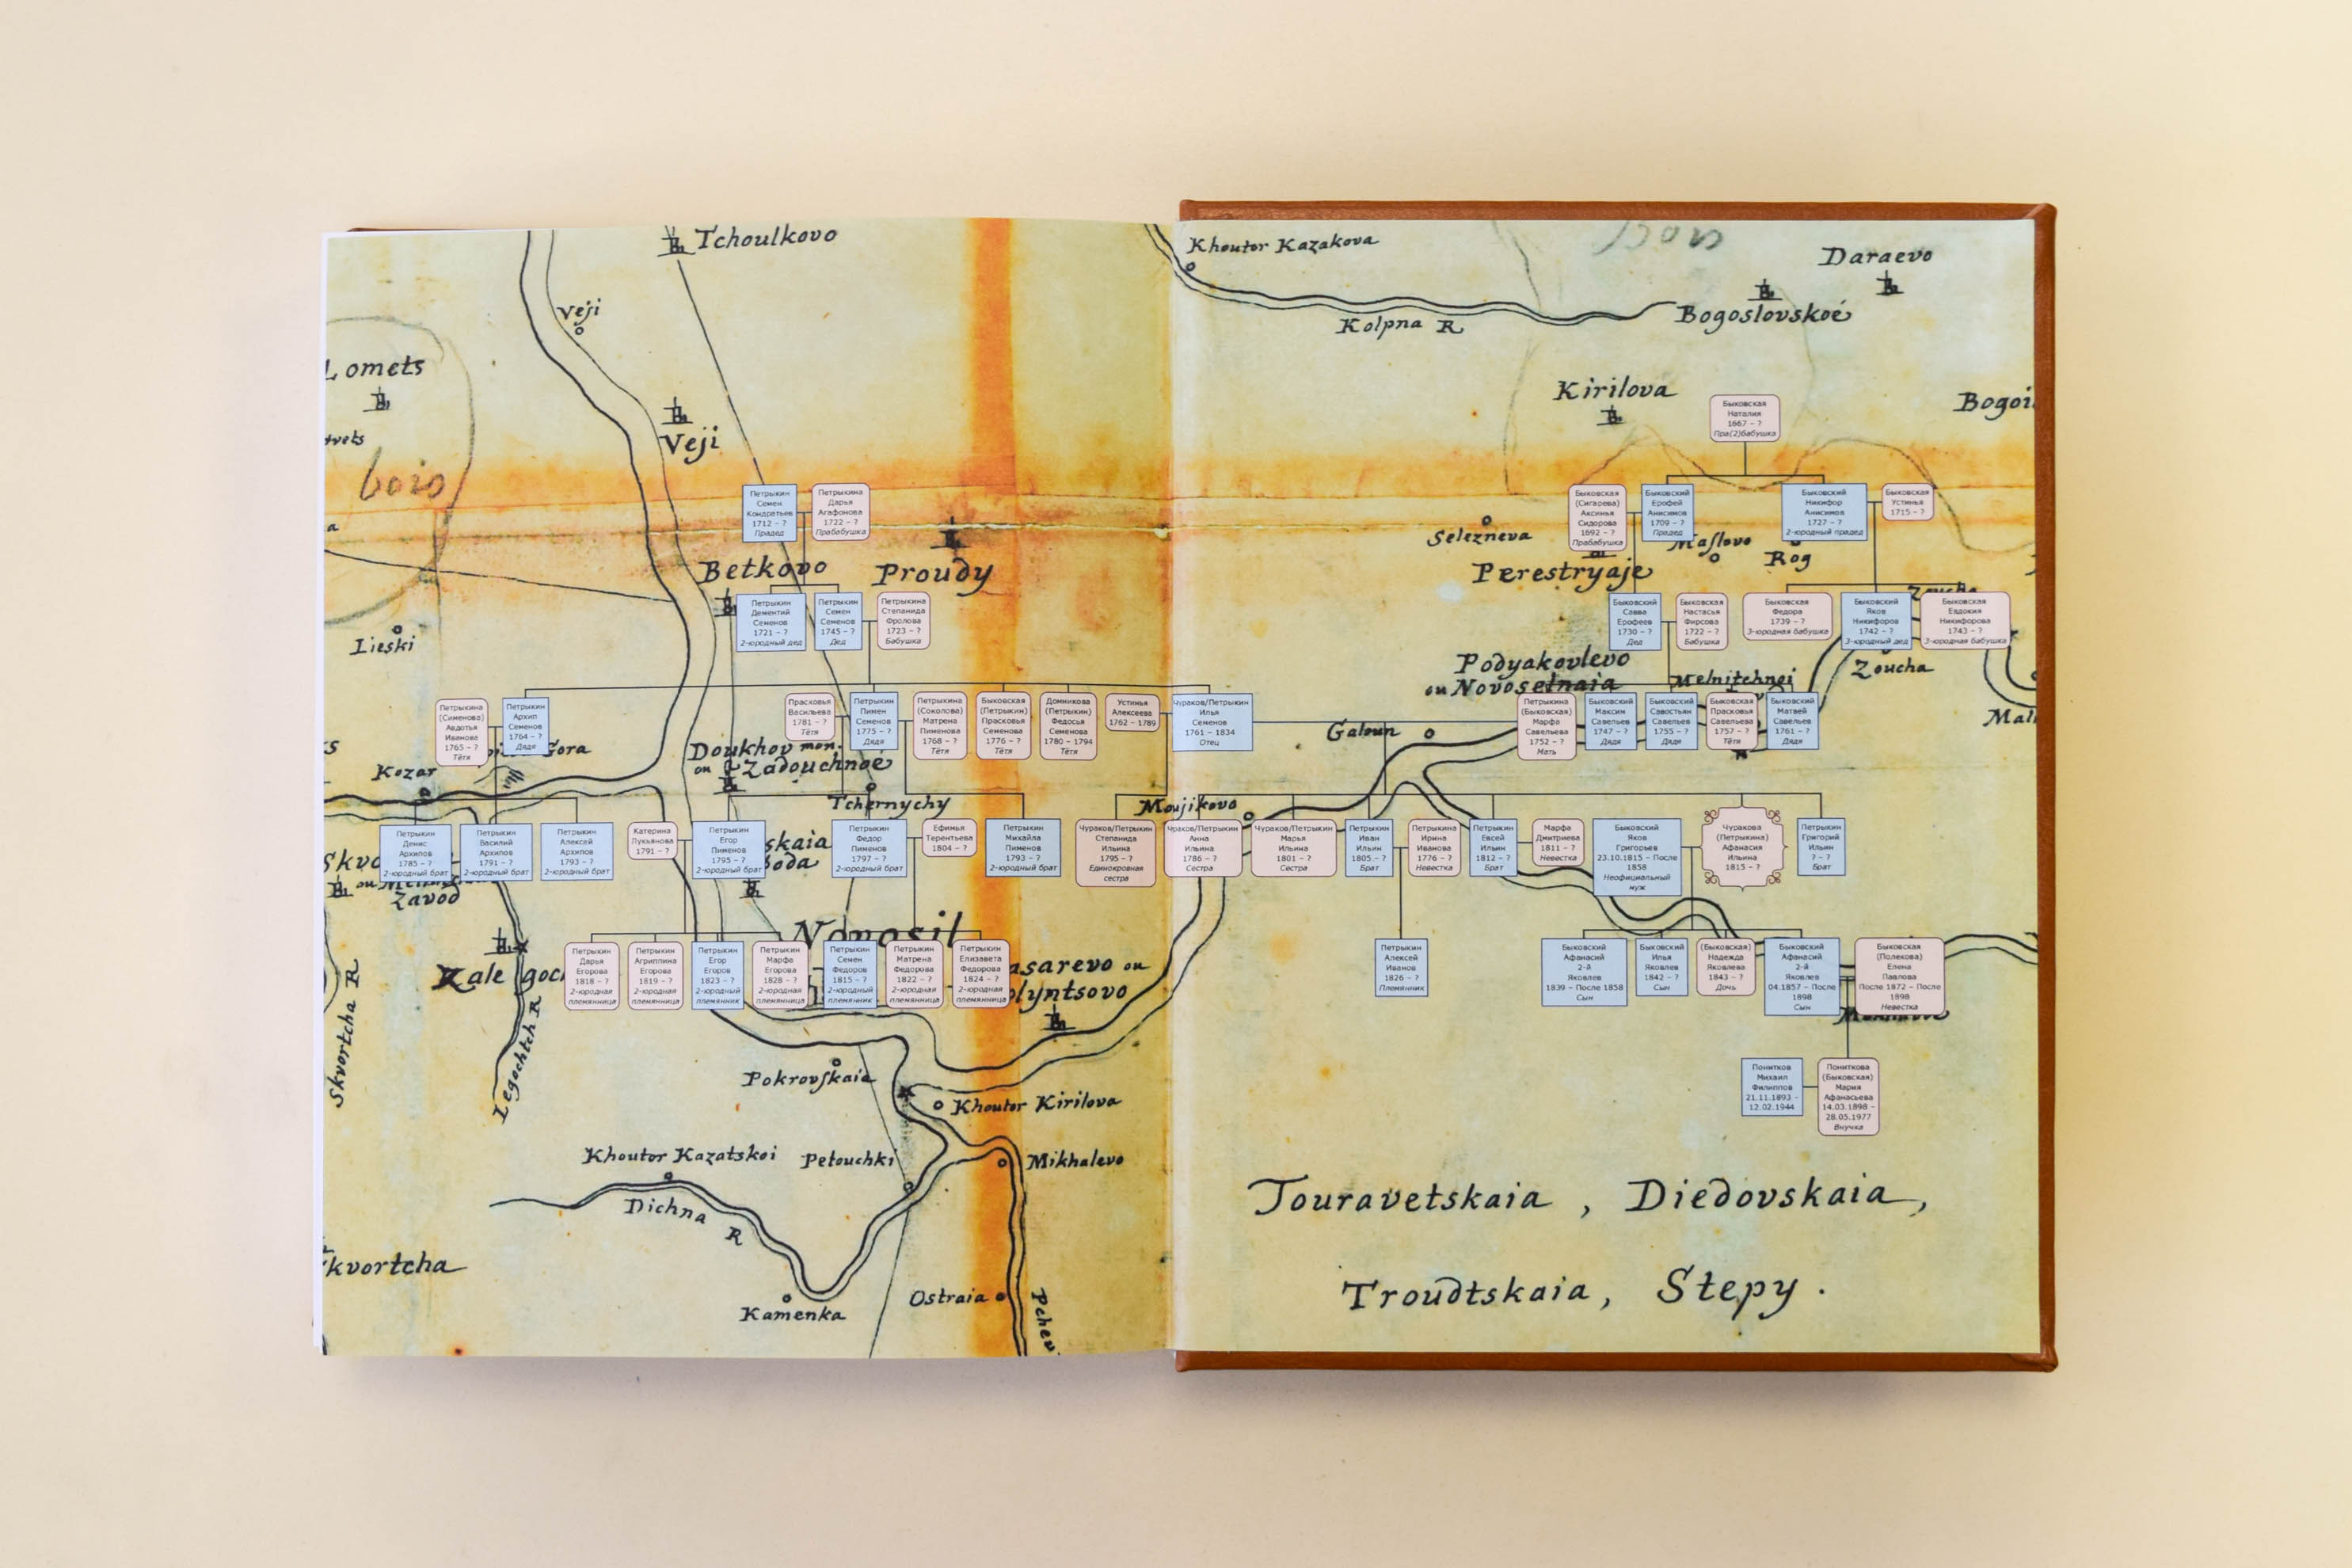 Tchoulkovo
Veji
Lomets
Veji
bois
Петрыкин
Семен
Кондратьев
1712 – ?
Прадед
Петрыкина
Дарья
Агафонова
1722 – ?
Прабабушка
Betkovo
Proudy
Петрыкин
Дементий
Семенов
1721 – ?
2-юродный дед
Петрыкин
Семен
Семенов
1745 – ?
Дед
Петрыкина
Степанида
Фролова
1723 – ?
Бабушка
Lieski
Петрыкина
(Сименова)
Авдотья
Иванова
1765 – ?
Тётя
Петрыкин
Архип
Семенов
1764 – ?
Дядя
Прасковья
Васильева
1781 – ?
Тётя
Петрыкин
Пимен
Семенов
1775 – ?
Дядя
Петрыкина
(Соколова)
Матрена
Пименова
1768 – ?
Тётя
Быковская
(Петрыкин)
Прасковья
Семенова
1776 – ?
Тётя
Домникова
(Петрыкин)
Федосья
Семенова
1780 – 1794
Тётя
Устинья
Алексеева
1762 – 1789
Чураков/Петрыкин
Илья
Семенов
1761 – 1834
Отец
Gora
Doukhov mon.
ou Zadouchnoe
Kozar
Tchernychy
Moujikovo
Петрыкин
Денис
Архипов
1785 – ?
2-юродный брат
Петрыкин
Василий
Архипов
1791 – ?
2-юродный брат
Петрыкин
Алексей
Архипов
1793 – ?
2-юродный брат
Катерина
Лукьянова
1791 – ?
Петрыкин
Егор
Пименов
1795 – ?
2-юродный брат
skaia
Петрыкин
Федор
Пименов
1797 – ?
2-юродный брат
Ефимья
Терентьева
1804 – ?
Петрыкин
Михайла
Пименов
1793 – ?
2-юродный брат
Чураков/Петрыкин
Степанида
Ильина
1795 – ?
Единокровная
сестра
Чураков/Петрыкин
Анна
Ильина
1786 – ?
Сестра
Zavod
Novosil
Петрыкин
Дарья
Егорова
1818 – ?
2-юродная
племянница
Петрыкин
Агриппина
Егорова
1819 – ?
2-юродная
племянница
Петрыкин
Егор
Егоров
1823 – ?
2-юродный
племянник
Петрыкин
Марфа
Егорова
1828 – ?
2-юродная
племянница
Петрыкин
Семен
Федоров
1815 – ?
2-юродный
племянник
Петрыкин
Матрена
Федорова
1822 – ?
2-юродная
племянница
Петрыкин
Елизавета
Федорова
1824 – ?
2-юродная
племянница
asarevo ou
olyntsovo
Skvortcha R
Legochtch R
Pokrovskaia
Khoutor Kirilova
Khoutor Kazatskoi
Petouchki
Mikhalevo
Dichna R
kvortcha
Kamenka
Ostraia
Khoutor Kazakova
Kolpna R
Daraevo
Bogoslovskoé
Kirilova
Быковская
Наталия
1667 – ?
Пра(2)бабушка
Быковская
(Сигарева)
Аксинья
Сидорова
1692 – ?
Прабабушка
Быковский
Ерофей
Анисимов
1709 – ?
Прадед
Быковский
Никифор
Анисимов
1727 – ?
2-юродный прадед
Быковская
Устинья
1715 – ?
Selezneva
Maslovo
Rog
Perestryaje
Быковский
Савва
Ерофеев
1730 – ?
Дед
Быковская
Настасья
Фирсова
1722 – ?
Бабушка
Быковская
Федора
1739 – ?
3-юродная бабушка
Быковский
Яков
Никифоров
1742 – ?
3-юродный дед
Быковская
Евдокия
Никифорова
1743 – ?
3-юродная бабушка
Podyakovlevo
ou Novoselnaia
Melnitchnoi
Zoucha
Galoun
Петрыкина
(Быковская)
Марфа
Савельева
1752 – ?
Мать
Быковский
Максим
Савельев
1747 – ?
Дядя
Быковский
Савостьян
Савельев
1755 – ?
Дядя
Быковская
Прасковья
Савельева
1757 – ?
Тётя
Быковский
Матвей
Савельев
1761 – ?
Дядя
Чураков/Петрыкин
Марья
Ильина
1801 – ?
Сестра
Петрыкин
Иван
Ильин
1805 – ?
Брат
Петрыкина
Ирина
Иванова
1776 – ?
Невестка
Петрыкин
Евсей
Ильин
1812 – ?
Брат
Марфа
Дмитриева
1811 – ?
Невестка
Быковский
Яков
Григорьев
23.10.1815 – После
1858
Неофициальный
муж
Чуракова
(Петрыкина)
Афанасия
Ильина
1815 – ?
Петрыкин
Григорий
Ильин
? – ?
Брат
Петрыкин
Алексей
Иванов
1826 – ?
Племянник
Быковский
Афанасий
2-й
Яковлев
1839 – После 1858
Сын
Быковский
Илья
Яковлев
1842 – ?
Сын
(Быковская)
Надежда
Яковлева
1843 – ?
Дочь
Быковский
Афанасий
2-й
Яковлев
04.1857 – После
1898
Сын
Быковская
(Полекова)
Елена
Павлова
После 1872 – После
1898
Невестка
Понитков
Михаил
Филиппов
21.11.1893 –
12.02.1944
Пониткова
(Быковская)
Мария
Афанасьева
14.03.1898 –
28.05.1977
Внучка
Touravetskaia , Diedovskaia,
Troudtskaia, Stepy .